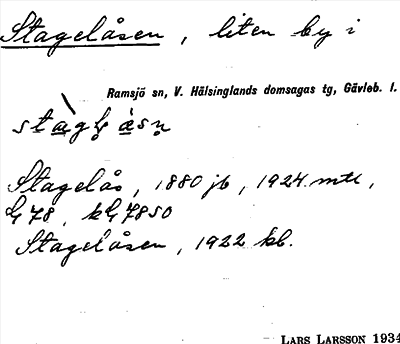 Stagelåsen, liten by i
Ramsjö sn, V. Hälsinglands domsagas tg, Gävleb. l.
Stagelås, 1880 jb, 1924 mtl,
G 78, kG 7850
Stagelåsen, 1922 kb.
LARS LARSSON 1934